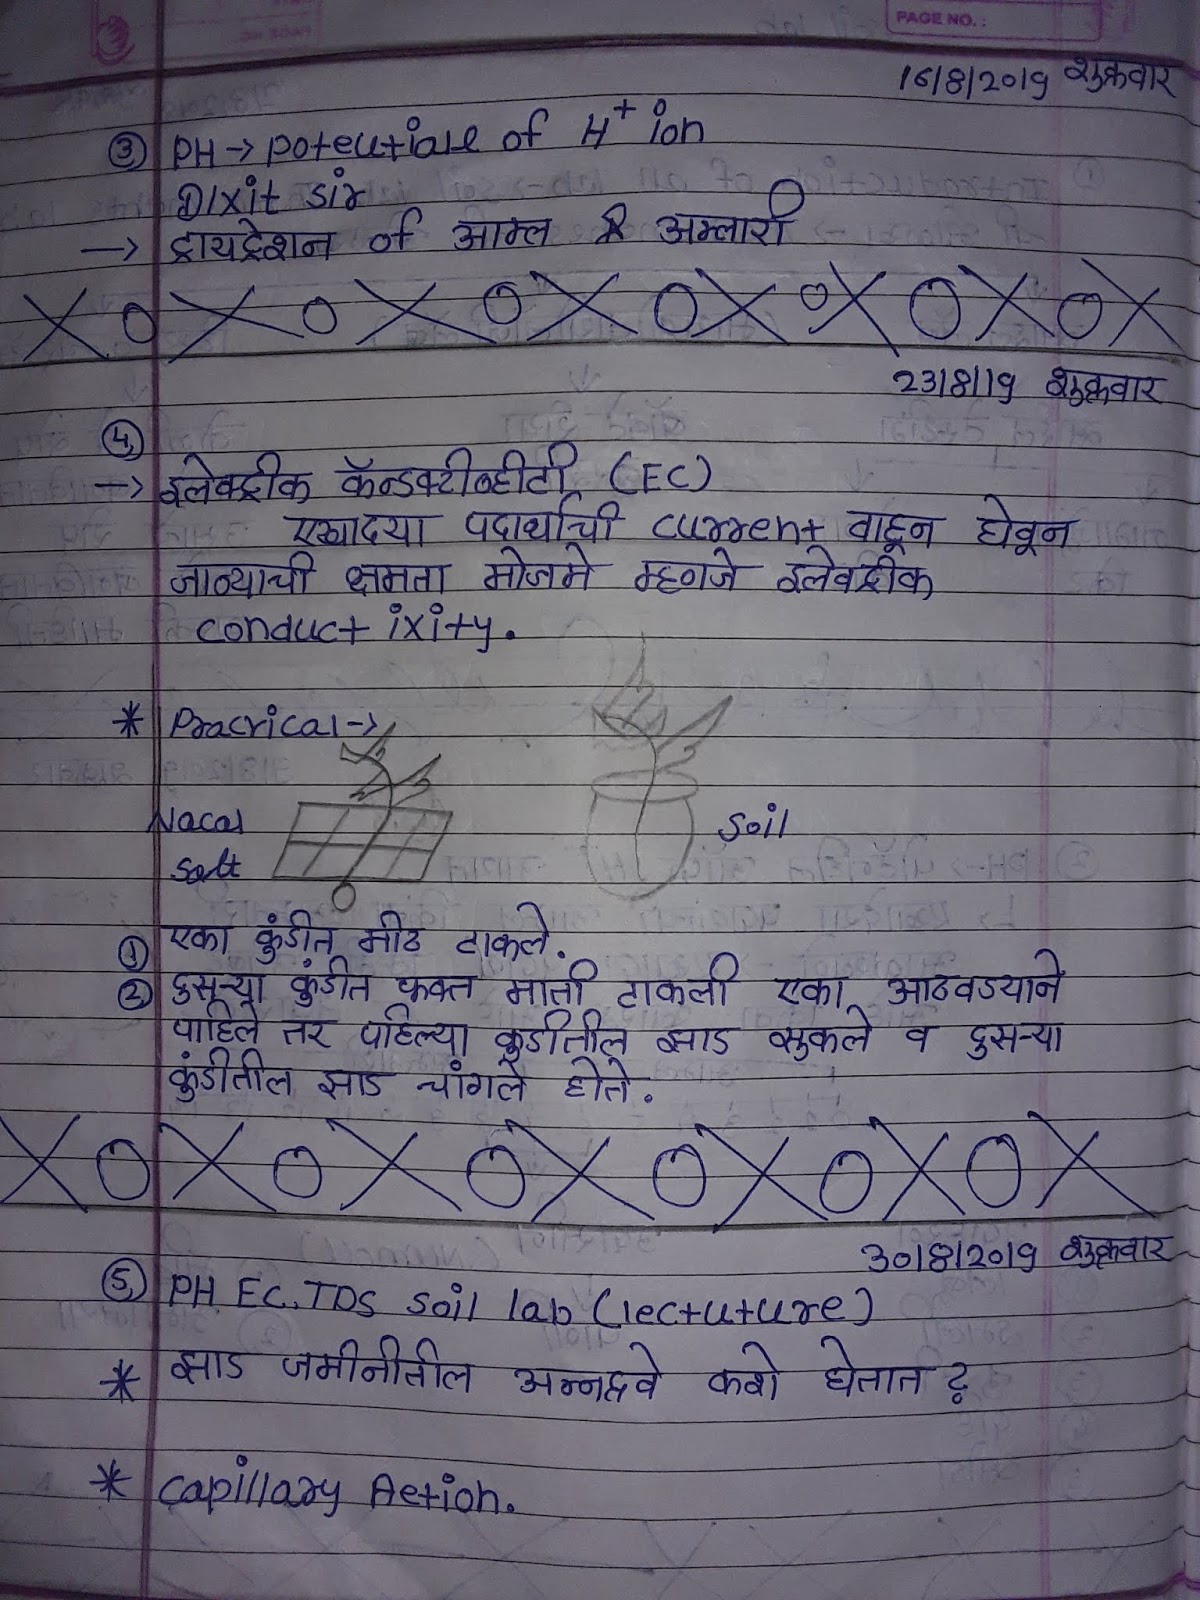 PAGE NO.:
16/8/2019 शुक्रवार
③ PH → Poteutiale of H+ ion
Dixit sir
→ ट्रायट्रेशन of आम्ल अम्लारी
23/8/19 शुक्रवार
④
→ इलेक्ट्रीक कॅन्डक्टीव्हीटी (EC)
एखादया पदार्थाची current वाहून घेवून
जान्याची क्षमता मोजमे म्हणजे इलेक्ट्रीक
conductixity.
* Pracrical →
Nacal
Salt
Soil
① एका कुंडीत मीठ टाकले.
② दुसऱ्या कुंडीत फक्त माती टाकली एका आठवडयाने
पाहिले तर पहिल्या कुडीतील झाड सुकले व दुसऱ्या
कुंडीतील झाड चांगले होते.
30/8/2019 शुक्रवार
⑤ PH EC. TDS Soil lab (lectuture)
* झाड जमीनीतील अन्नद्रवे कशे घेतात ?
* Capillary Action.